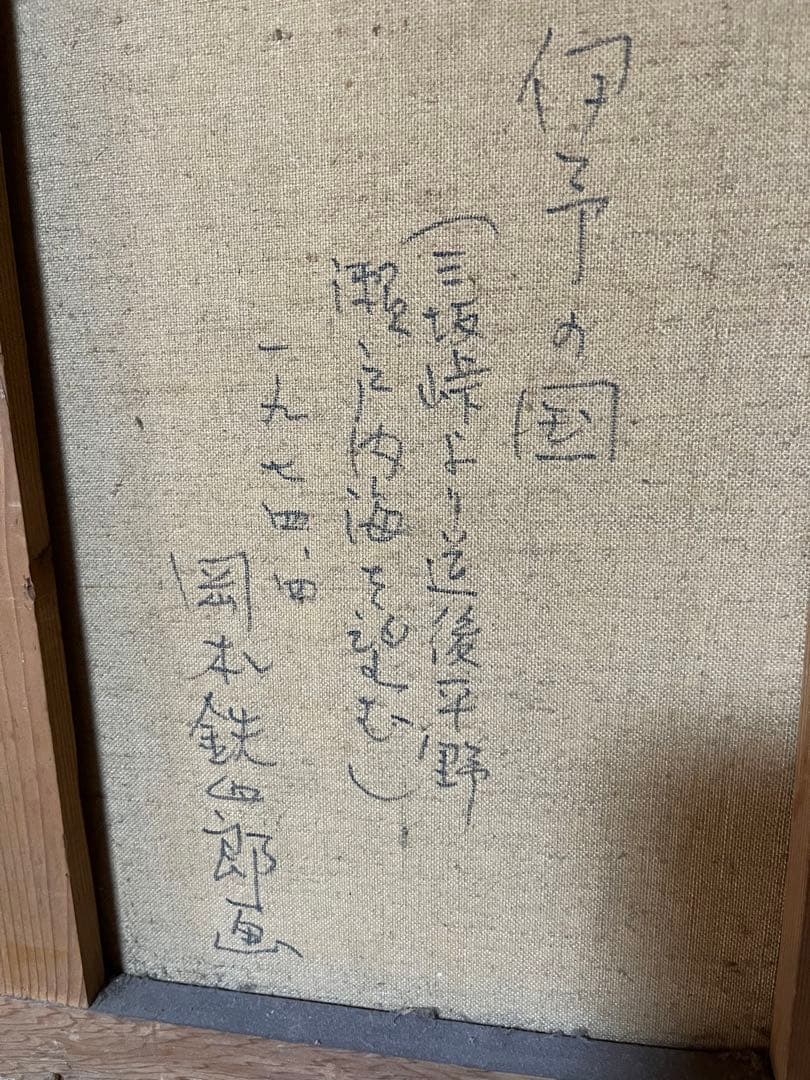 伊予の国
(三坂峠より道後平野
瀬戸内海を望む)
一九七四・四
岡本鉄四郎画